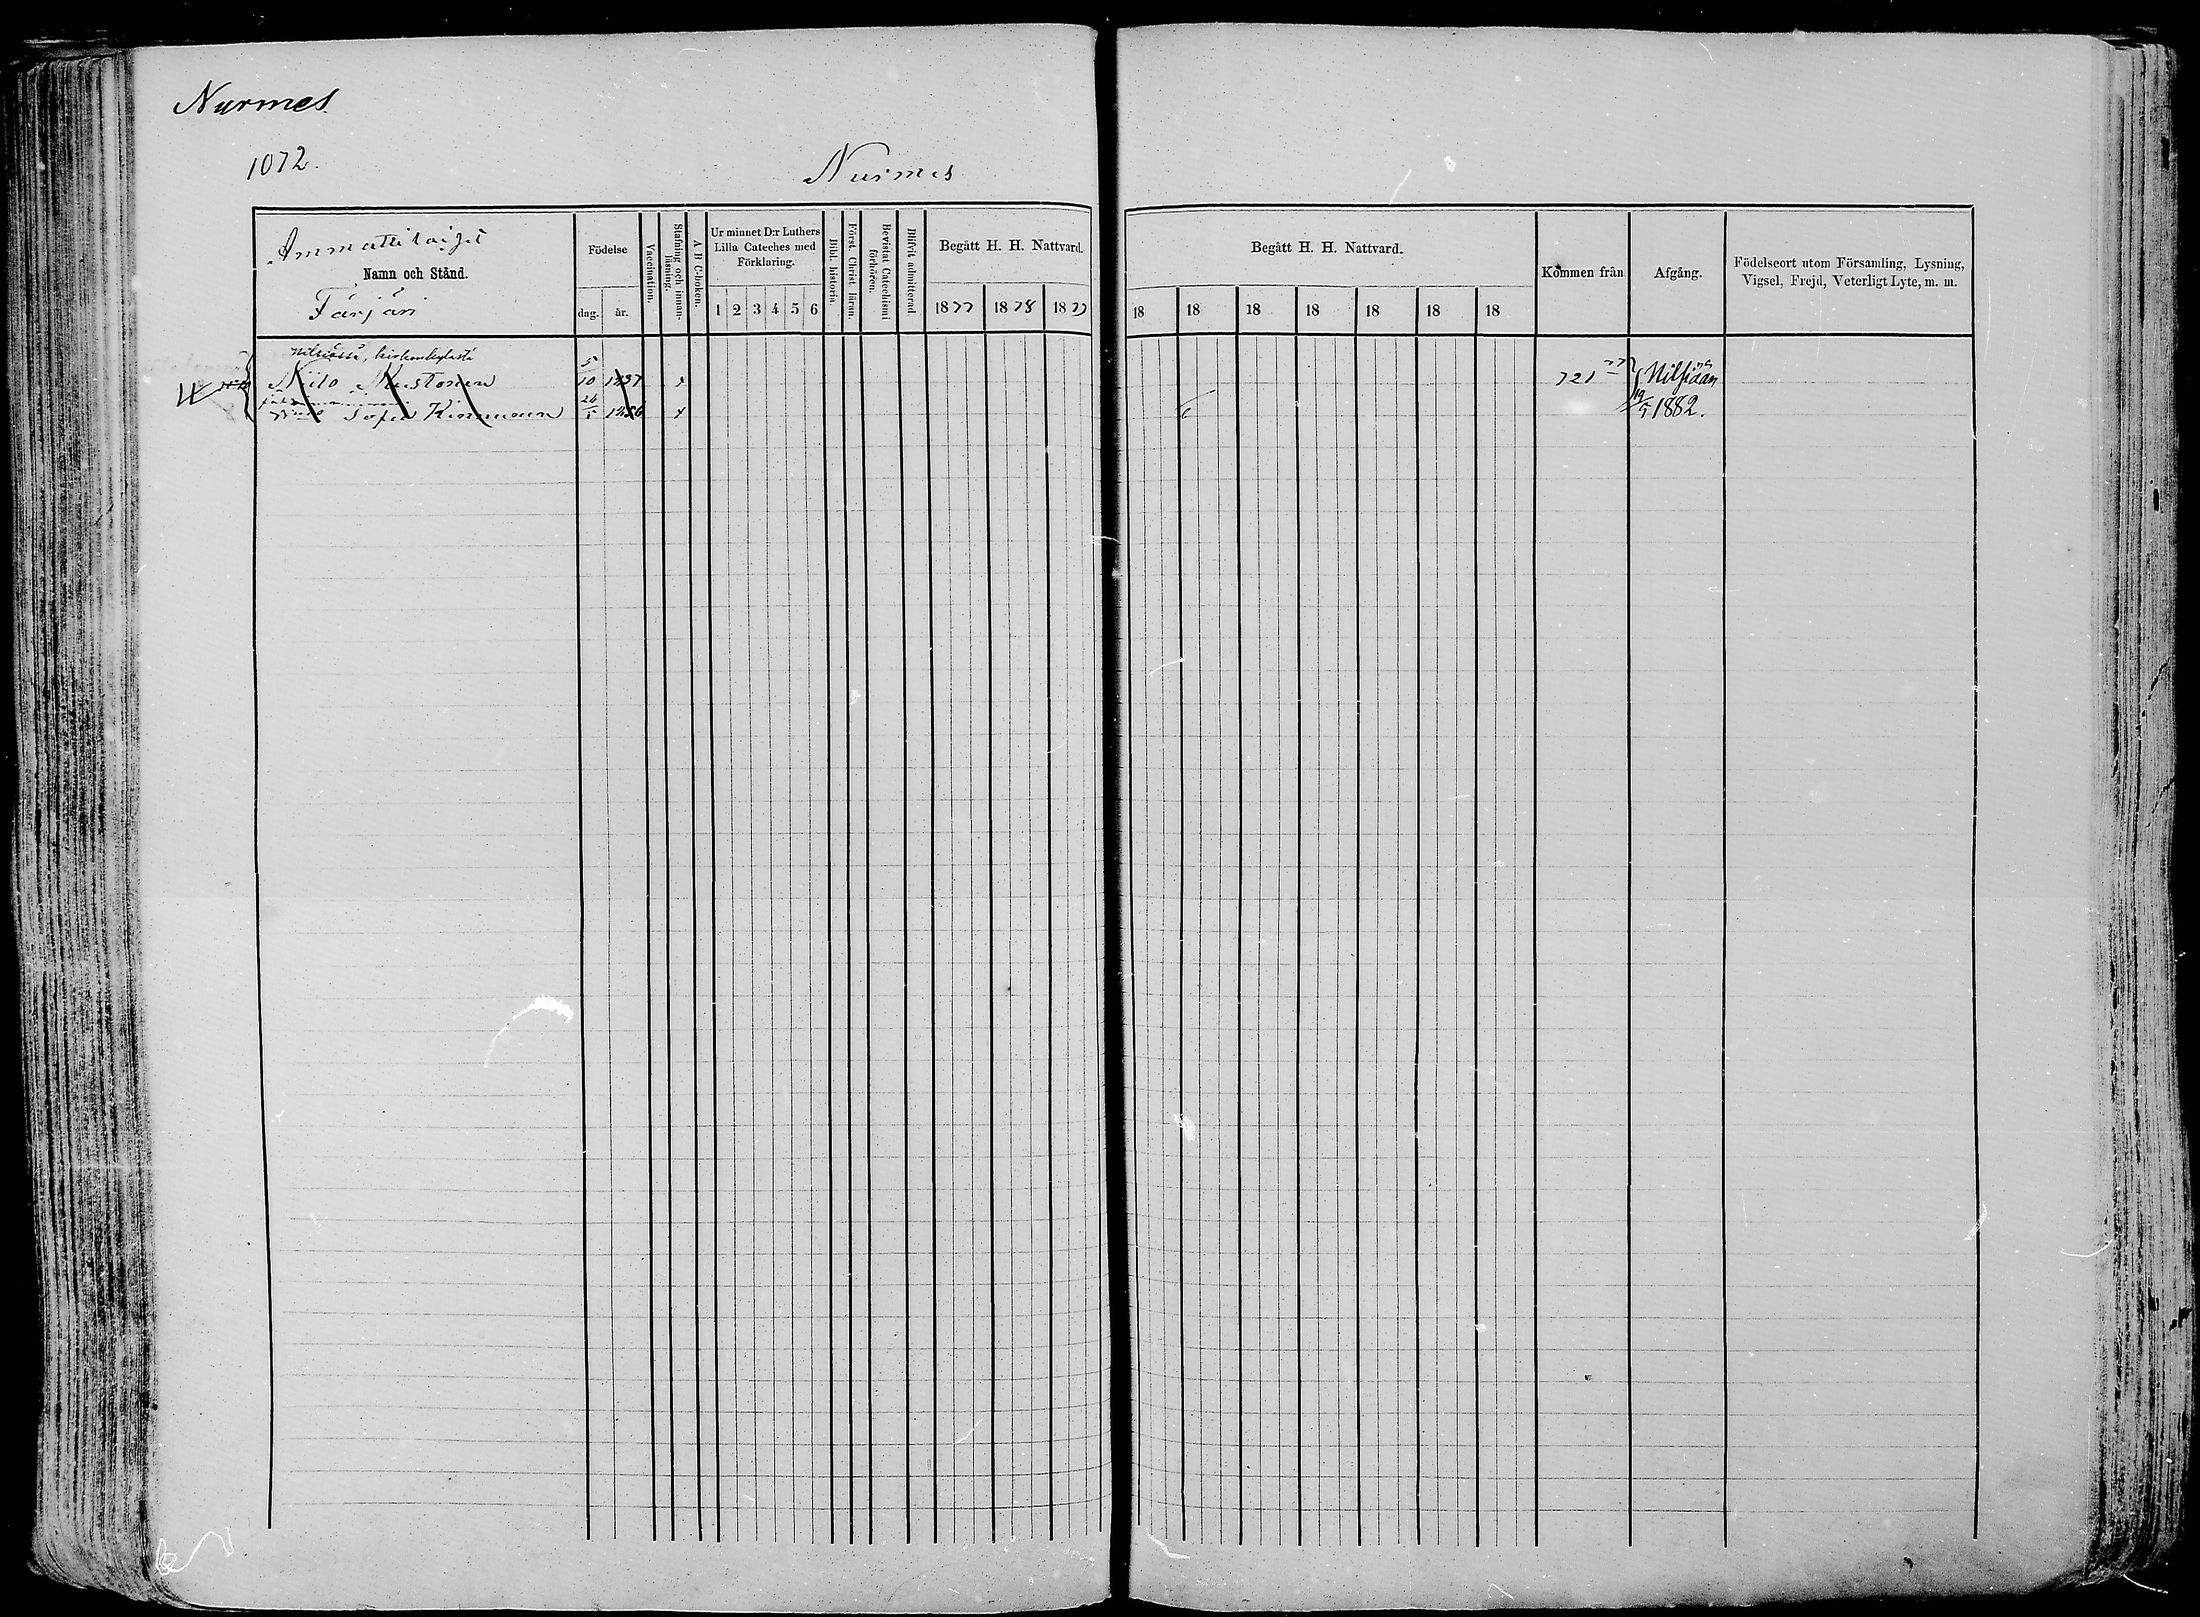 Nurmes
1072.
Nurmes
Ammattilaiset
Namn och Stånd.
Färjäri
Födelse
dag. år.
Vaccination.
Stafning och innanläsning.
A B C-boken.
Ur minnet D:r Luthers Lilla Cateches med Förklaring.
1 2 3 4 5 6
Bibl. historia
Först. Christ. läran.
Bevistat Catechismi förhören.
Blifvit admitterad
Begått H. H. Nattvard.
1877 1878 1879
Begått H. H. Nattvard.
18 18 18 18 18 18 18
Kommen från
Afgång.
Födelseort utom Församling, Lysning,
Vigsel, Frejd, Veterligt Lyte, m. m.
Nilsiässä, kirkonkylästä
Niilo Mustonen 5/10 1837 721 77 Nilsiään
Sofia Kinnunen 26/1 1856 6 19/5 1882.